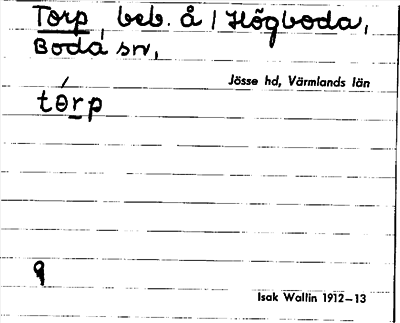 Torp, beb. å / Högboda,
Boda sn,
Jösse hd, Värmlands län
tɵ́rp
9
Isak Wallin 1912–13